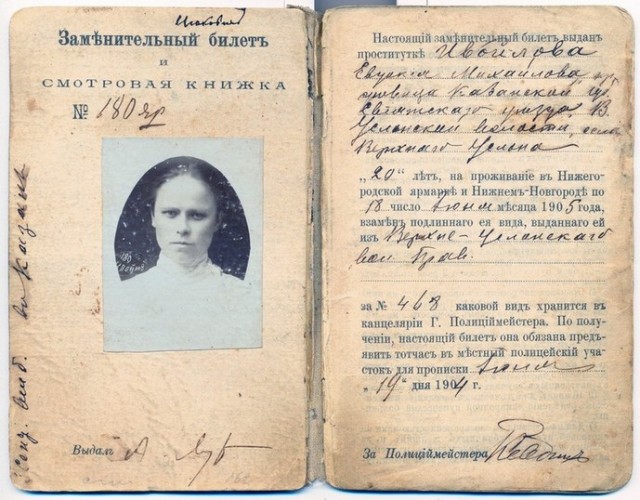 Замѣнительный билетъ
и
СМОТРОВАЯ КНИЖКА
№ 180 яр
Выдалъ
Настоящій замѣнительный билетъ выданъ
проституткѣ Ивойлова
Евдокія Михайлова
Казанской губ.
Свіяжскаго уѣзда, В.
Услонской волости, села
Верхняго Услона
„20“ лѣтъ, на проживаніе въ Нижего-
родской армаркѣ и Нижнемъ-Новгородѣ по
18 число Іюня мѣсяца 1905 года,
взамѣнъ подлиннаго ея вида, выданнаго ей
изъ Верхне-Услонскаго
вол. Прав.
за № 468 каковой видъ хранится въ
канцеляріи Г. Полиціймейстера. По полу-
ченіи, настоящій билетъ она обязана предъ-
явить тотчасъ въ мѣстный полицейскій уча-
стокъ для прописки Іюня
„19“ дня 1904 г.
За Полиціймейстера